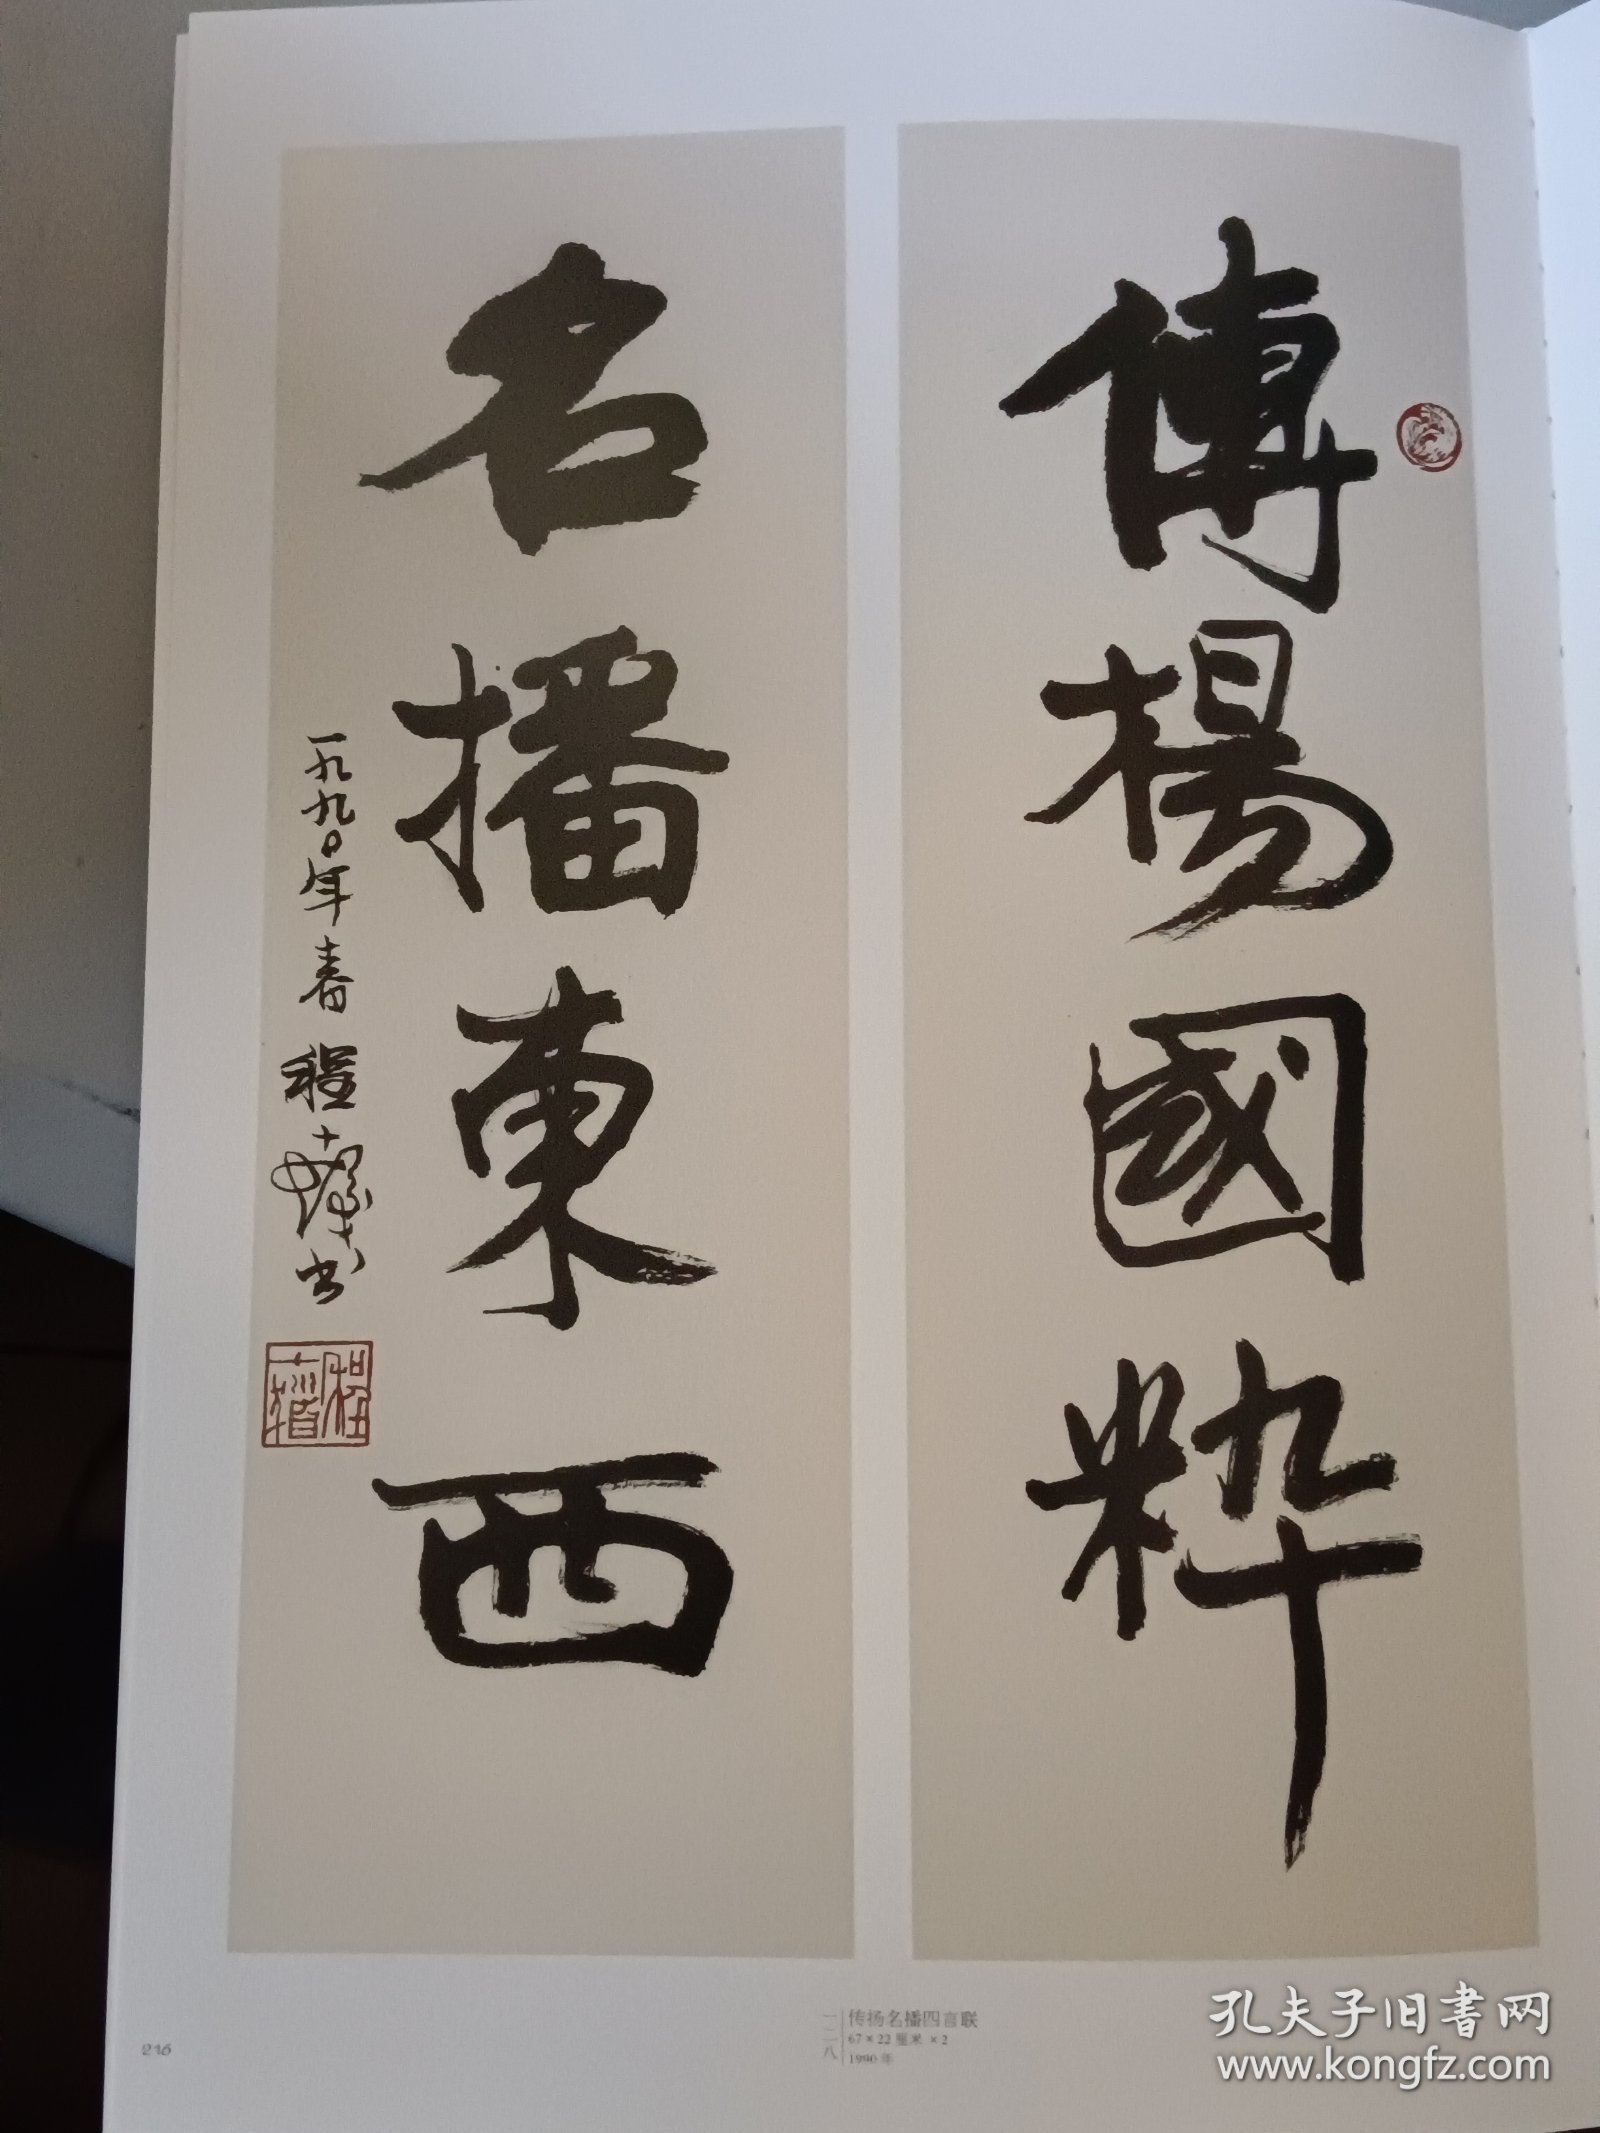 傳楊國粹
名播東西
一九九〇年春程十髮书
程十髮
传扬名播四言联
67×22厘米 ×2
1990年
一二一八
216
孔夫子旧书网
www.kongfz.com